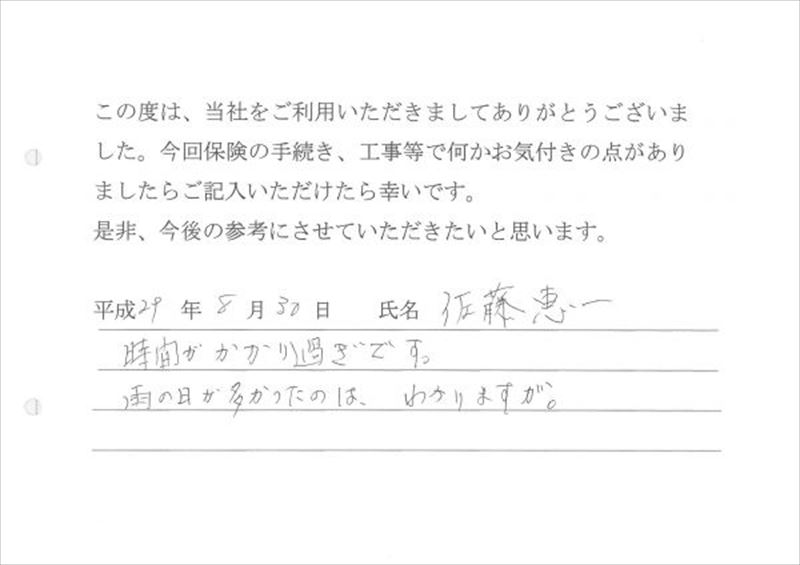 この度は、当社をご利用いただきましてありがとうございま
した。今回保険の手続き、工事等で何かお気付きの点があり
ましたらご記入いただけたら幸いです。
是非、今後の参考にさせていただきたいと思います。
平成29年8月30日 氏名 佐藤恵一
時間がかかり過ぎです。
雨の日が多かったのは、わかりますが。